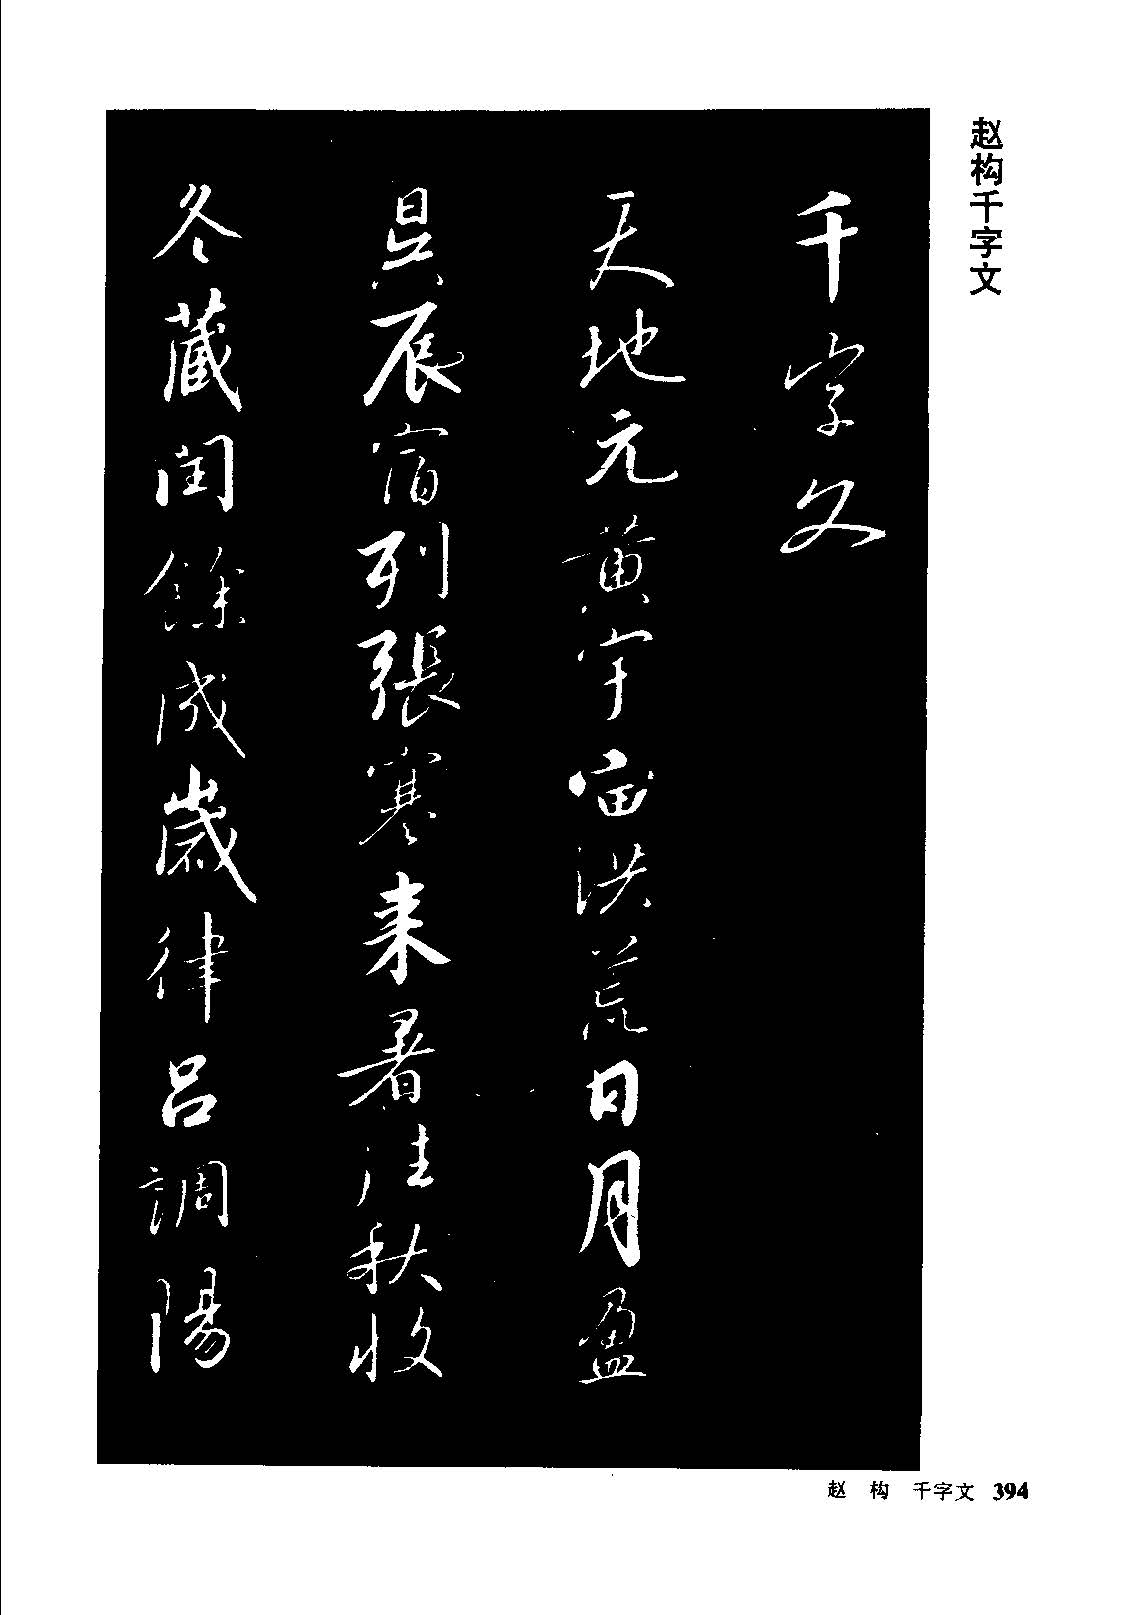 赵构千字文
千字文
天地元黄宇宙洪荒日月盈
昃辰宿列張寒来暑往秋收
冬藏閏餘成歲律吕調陽
赵 构 千字文 394